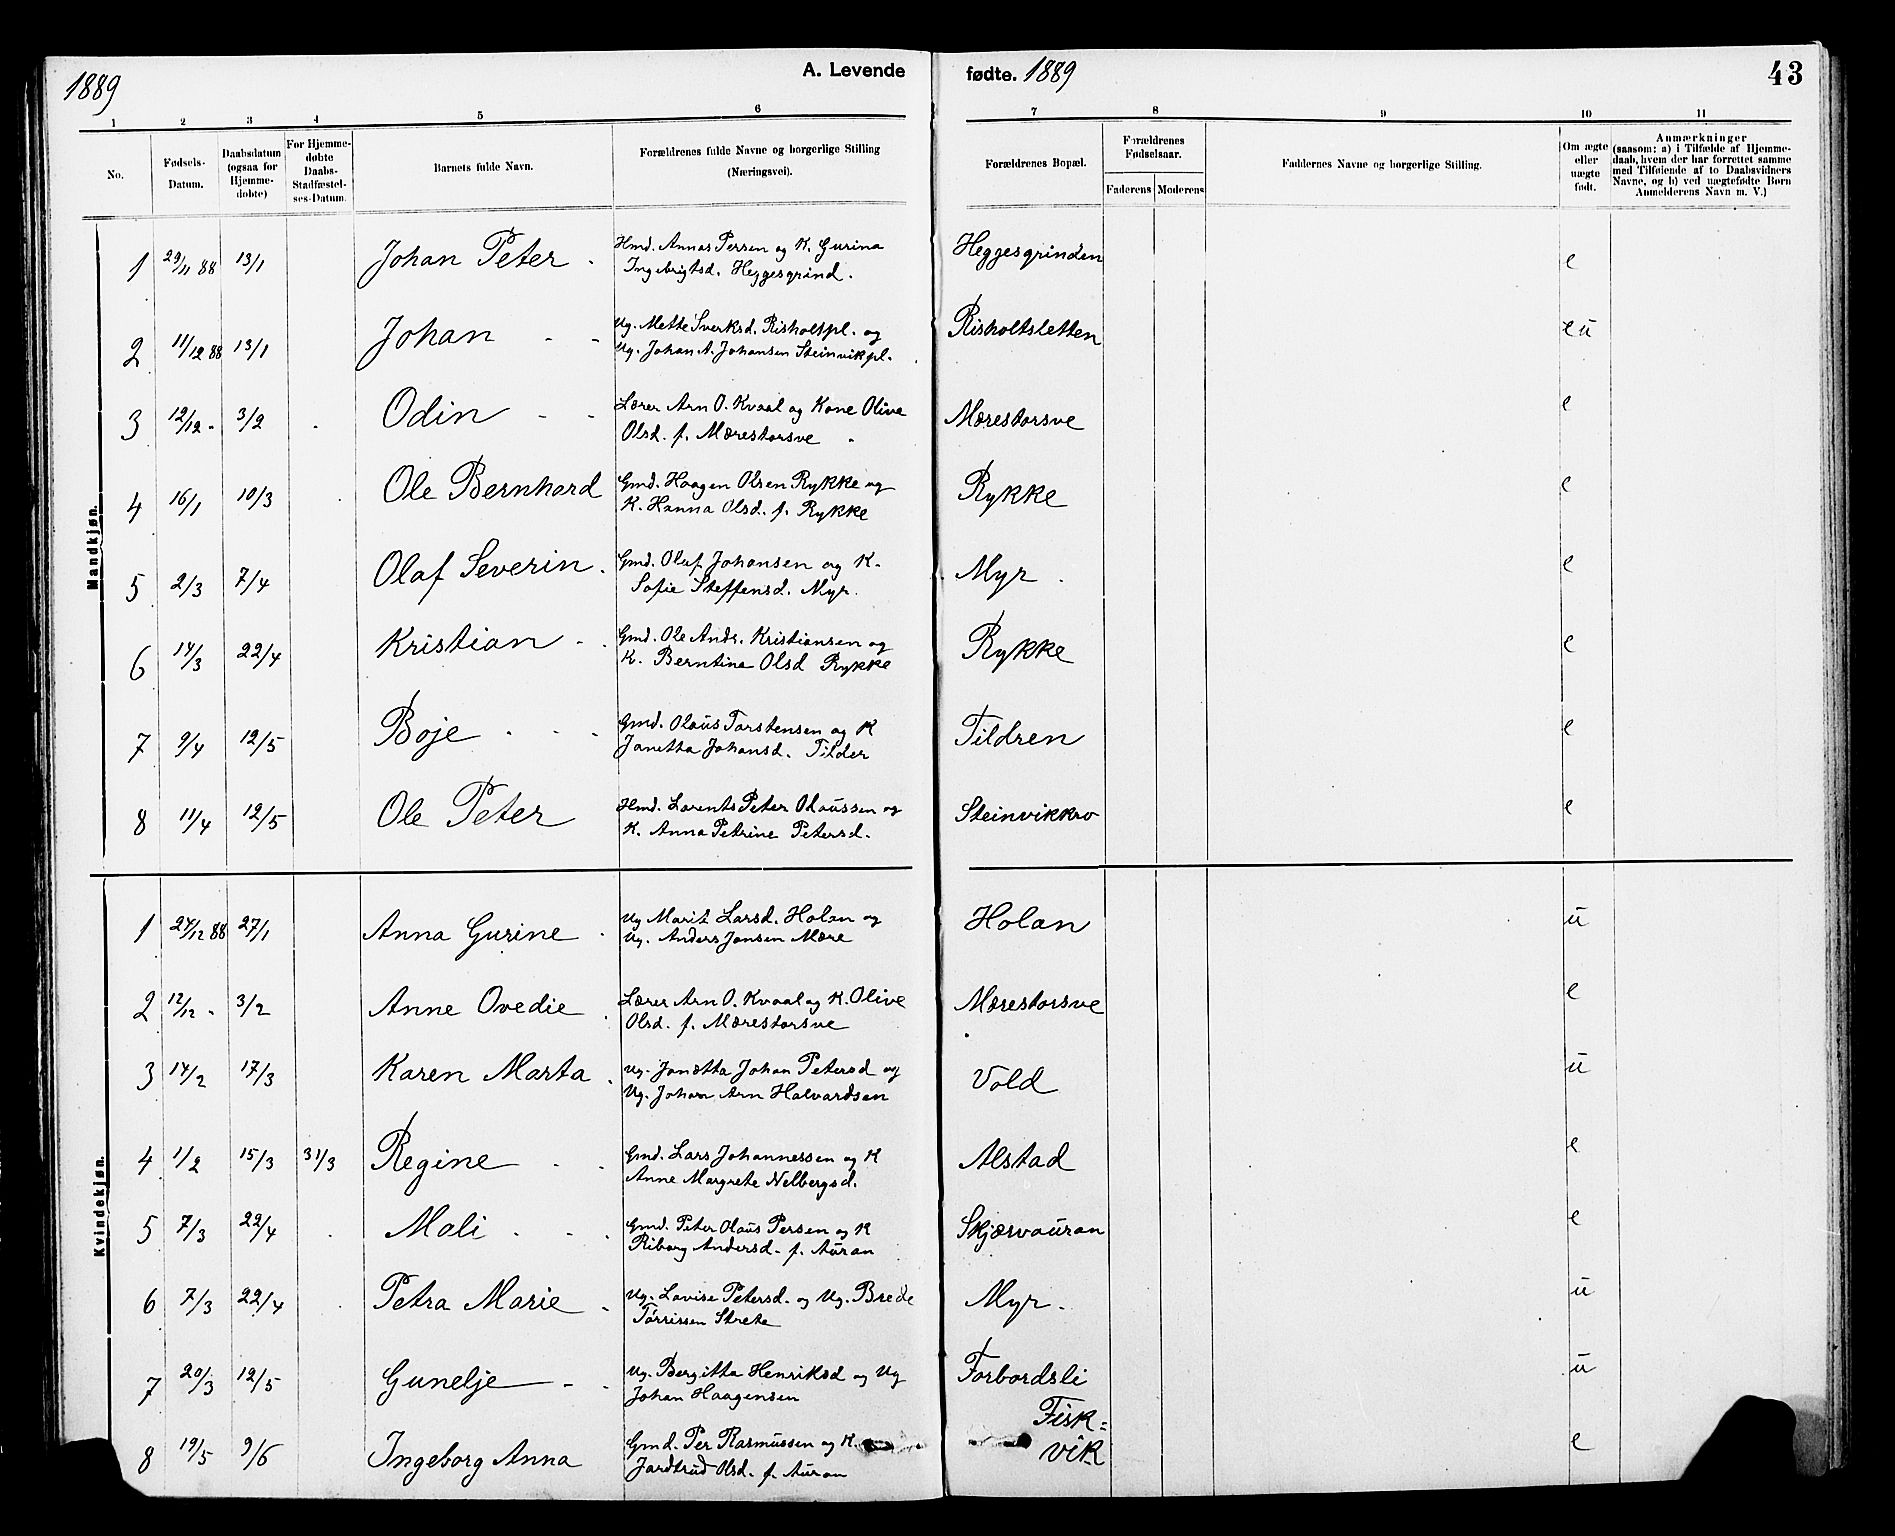 1889
A. Levende
fødte. 1889
43
1 2 3 4 5 6 7 8 9 10 11
No.
Fødsels-
Datum.
Daabsdatum
(ogsaa for
Hjemme-
døbte)
For Hjemme-
døbte
Daabs-
Stadfæstel-
ses-Datum.
Barnets fulde Navn.
Forældrenes fulde Navne og borgerlige Stilling
(Næringsvei).
Forældrenes Bopæl.
Forældrenes
Fødselsaar.
Faderens Moderens
Faddernes Navne og borgerlige Stilling.
Om ægte
eller
uægte
født.
Anmærkninger
(saasom: a) i Tilfælde af Hjemme-
daab, hvem der har forrettet samme
med Tilføiende af to Daabsvidners
Navne, og b) ved uægtefødte Børn
Anmelderens Navn m. V.)
Mandkjøn.
1 29/11 88 13/1 Johan Peter . Hmd. Annas Persen og K. Gurina
Ingebrigtsd. Heggesgrind. Heggesgrinden e
2 11/12 88 13/1 Johan - - Ug. Mette Sverksd. Risholtpl. og
Ug. Johan A. Johansen Steinvikpl. Risholtsletten eu
3 12/12 - 3/2 Odin - - Lærer Arn O. Kvaal og Kone Olive
Olsd. f. Mærestorsve Mærestorsve e
4 16/1 10/3 Ole Bernhard Gmd. Haagen Olsen Rykke og
K. Hanna Olsd. f. Rykke Rykke e
5 2/3 7/4 Olaf Severin . Gmd. Olaf Johansen og K.
Sofie Steffensd. Myr. Myr . e
6 14/3 22/4 Kristian - . Gmd. Ole Andr. Kristiansen og
K. Berntine Olsd Rykke Rykke e
7 9/4 12/5 Boje - - - Gmd. Olaus Torstensen og K
Janetta Johansd. Tilder Tildren e
8 11/4 12/5 Ole Peter Hmd. Lorents Peter Olaussen og
K. Anna Petrine Petersd. Steinvikkro e
Kvindekjøn.
1 24/12 88 27/1 Anna Gurine . Ug Marit Larsd. Holan og
Ug. Anders Jonsen Mære Holan u
2 12/12 - 3/2 Anne Ovedie . Lærer Arn O. Kvaal og K. Olive
Olsd. f. Mærestorsve Mærestorsve e
3 14/2 17/3 Karen Marta . Ug. Janetta Johan Petersd og
Ug. Johan Arn Halvardsen Vold u
4 1/2 15/3 31/3 Regine - - Gmd. Lars Johannessen og K
Anne Margrete Nelbergsd. Alstad e
5 7/3 22/4 Mali - - . Gmd. Peter Olaus Persen og K
Riborg Andersd. f. Auran Skjærvauran e
6 7/3 22/4 Petra Marie . Ug. Lovise Petersd. og Ug. Brede
Tørrissen Strete Myr. u
7 20/3 12/5 Gunelje - - Ug. Bergitta Henriksd og Ug
Johan Haagensen Forbordsli u
8 19/5 9/6 Ingeborg Anna Gmd. Per Rasmussen og K.
Jardtrud Olsd. f. Auran Fisk=
vik e